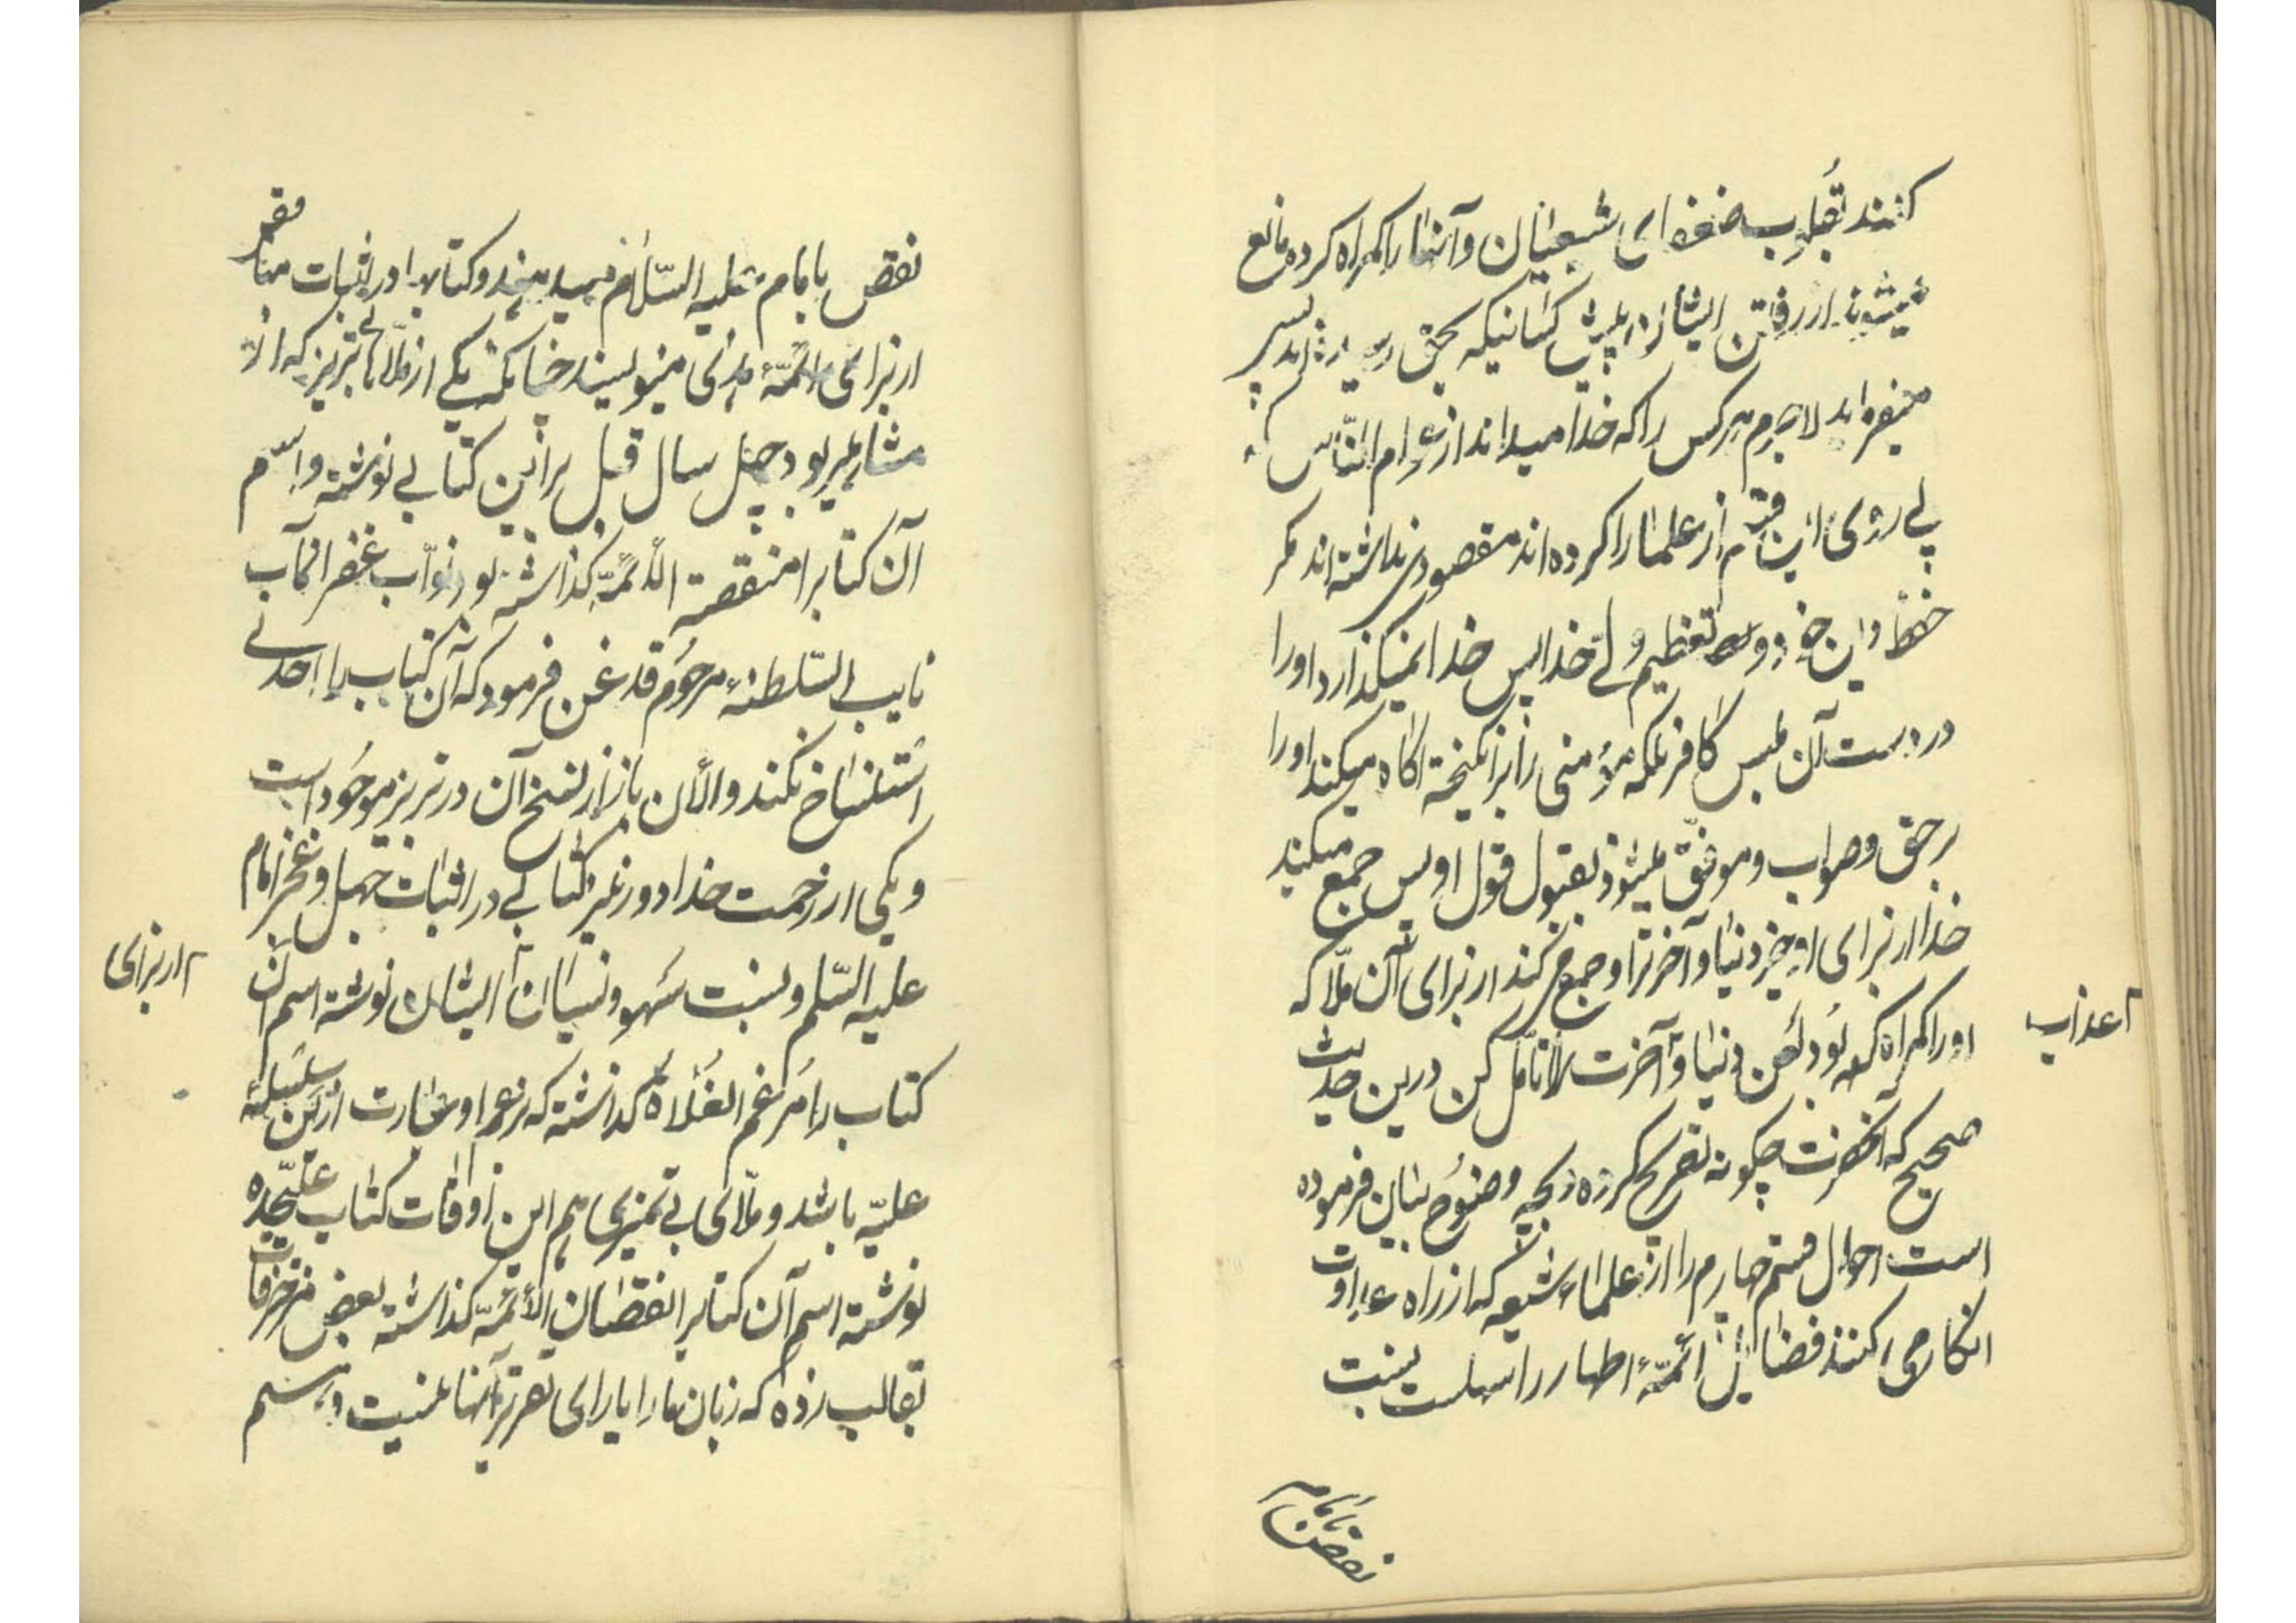 کنند بقلوب ضعفای شیعیان و آنها را گمراه کرده مانع
میشوند از رفتن ایشان به پیش کسانیکه بحق رسیده‌اند پس
میفرماید لاجرم هر کس را که خدا میداند از عوام الناس که
پی روی این قسم از علما را کرده‌اند مقصودی نداشته‌اند مگر
حفظ دین خود و تعظیم ولی خدا پس خدا نمیگذارد او را
در دست آن ملبس کافر بلکه مؤمنی را برانگیخته آگاه میکند او را
بر حق و صواب و موفق میشود بقبول قول او پس جمع میکند
خدا از برای او خیر دنیا و آخرت را و جمع میکند از برای آن ملا که
او را گمراه کرده بود لعن دنیا و آخرت را تأمل کن درین حدیث
اعذاب
صحیح که آنحضرت چگونه تصریح کرده و بچه وضوح بیان فرموده
است احوال قسم چهارم را از علماء شیعه که از راه عداوت
انکار می کنند فضایل ائمهٔ اطهار را سهلست نسبت
نقص بامام
نقص بامام علیه السلام میدهند و کتابها در اثبات منقصة
از برای ائمهٔ هدی مینویسند چنانکه یکی از ملاهای تبریز که از
مشاهیر بود چهل سال قبل براین کتابی نوشته و اسم
آن کتابرا منقصة الائمة گذاشته بود نواب غفرانمآب
نایب السلطنهٔ مرحوم قدغن فرمود که آن کتاب را احدی
استنساخ نکند و الآن باز از نسخ آن در تبریز موجود است
و یکی از رحمت خدا دور نیز کتابی در اثبات جهل و عجز امام
علیه السلم و نسبت سهو و نسیان ایشان نوشته اسم آن
از برای
کتاب را مرغم الغلاة گذاشته که بزعم او عبارت ازین سلسلهٔ
علیّه باشد و ملای بی تمیزی هم این اوقات کتاب علیحده
نوشته اسم آن کتابرا نقصان الائمة گذاشته بعض مزخرفات
بقالب زده که زبان ما را یارای تقریر آنها نیست و هم